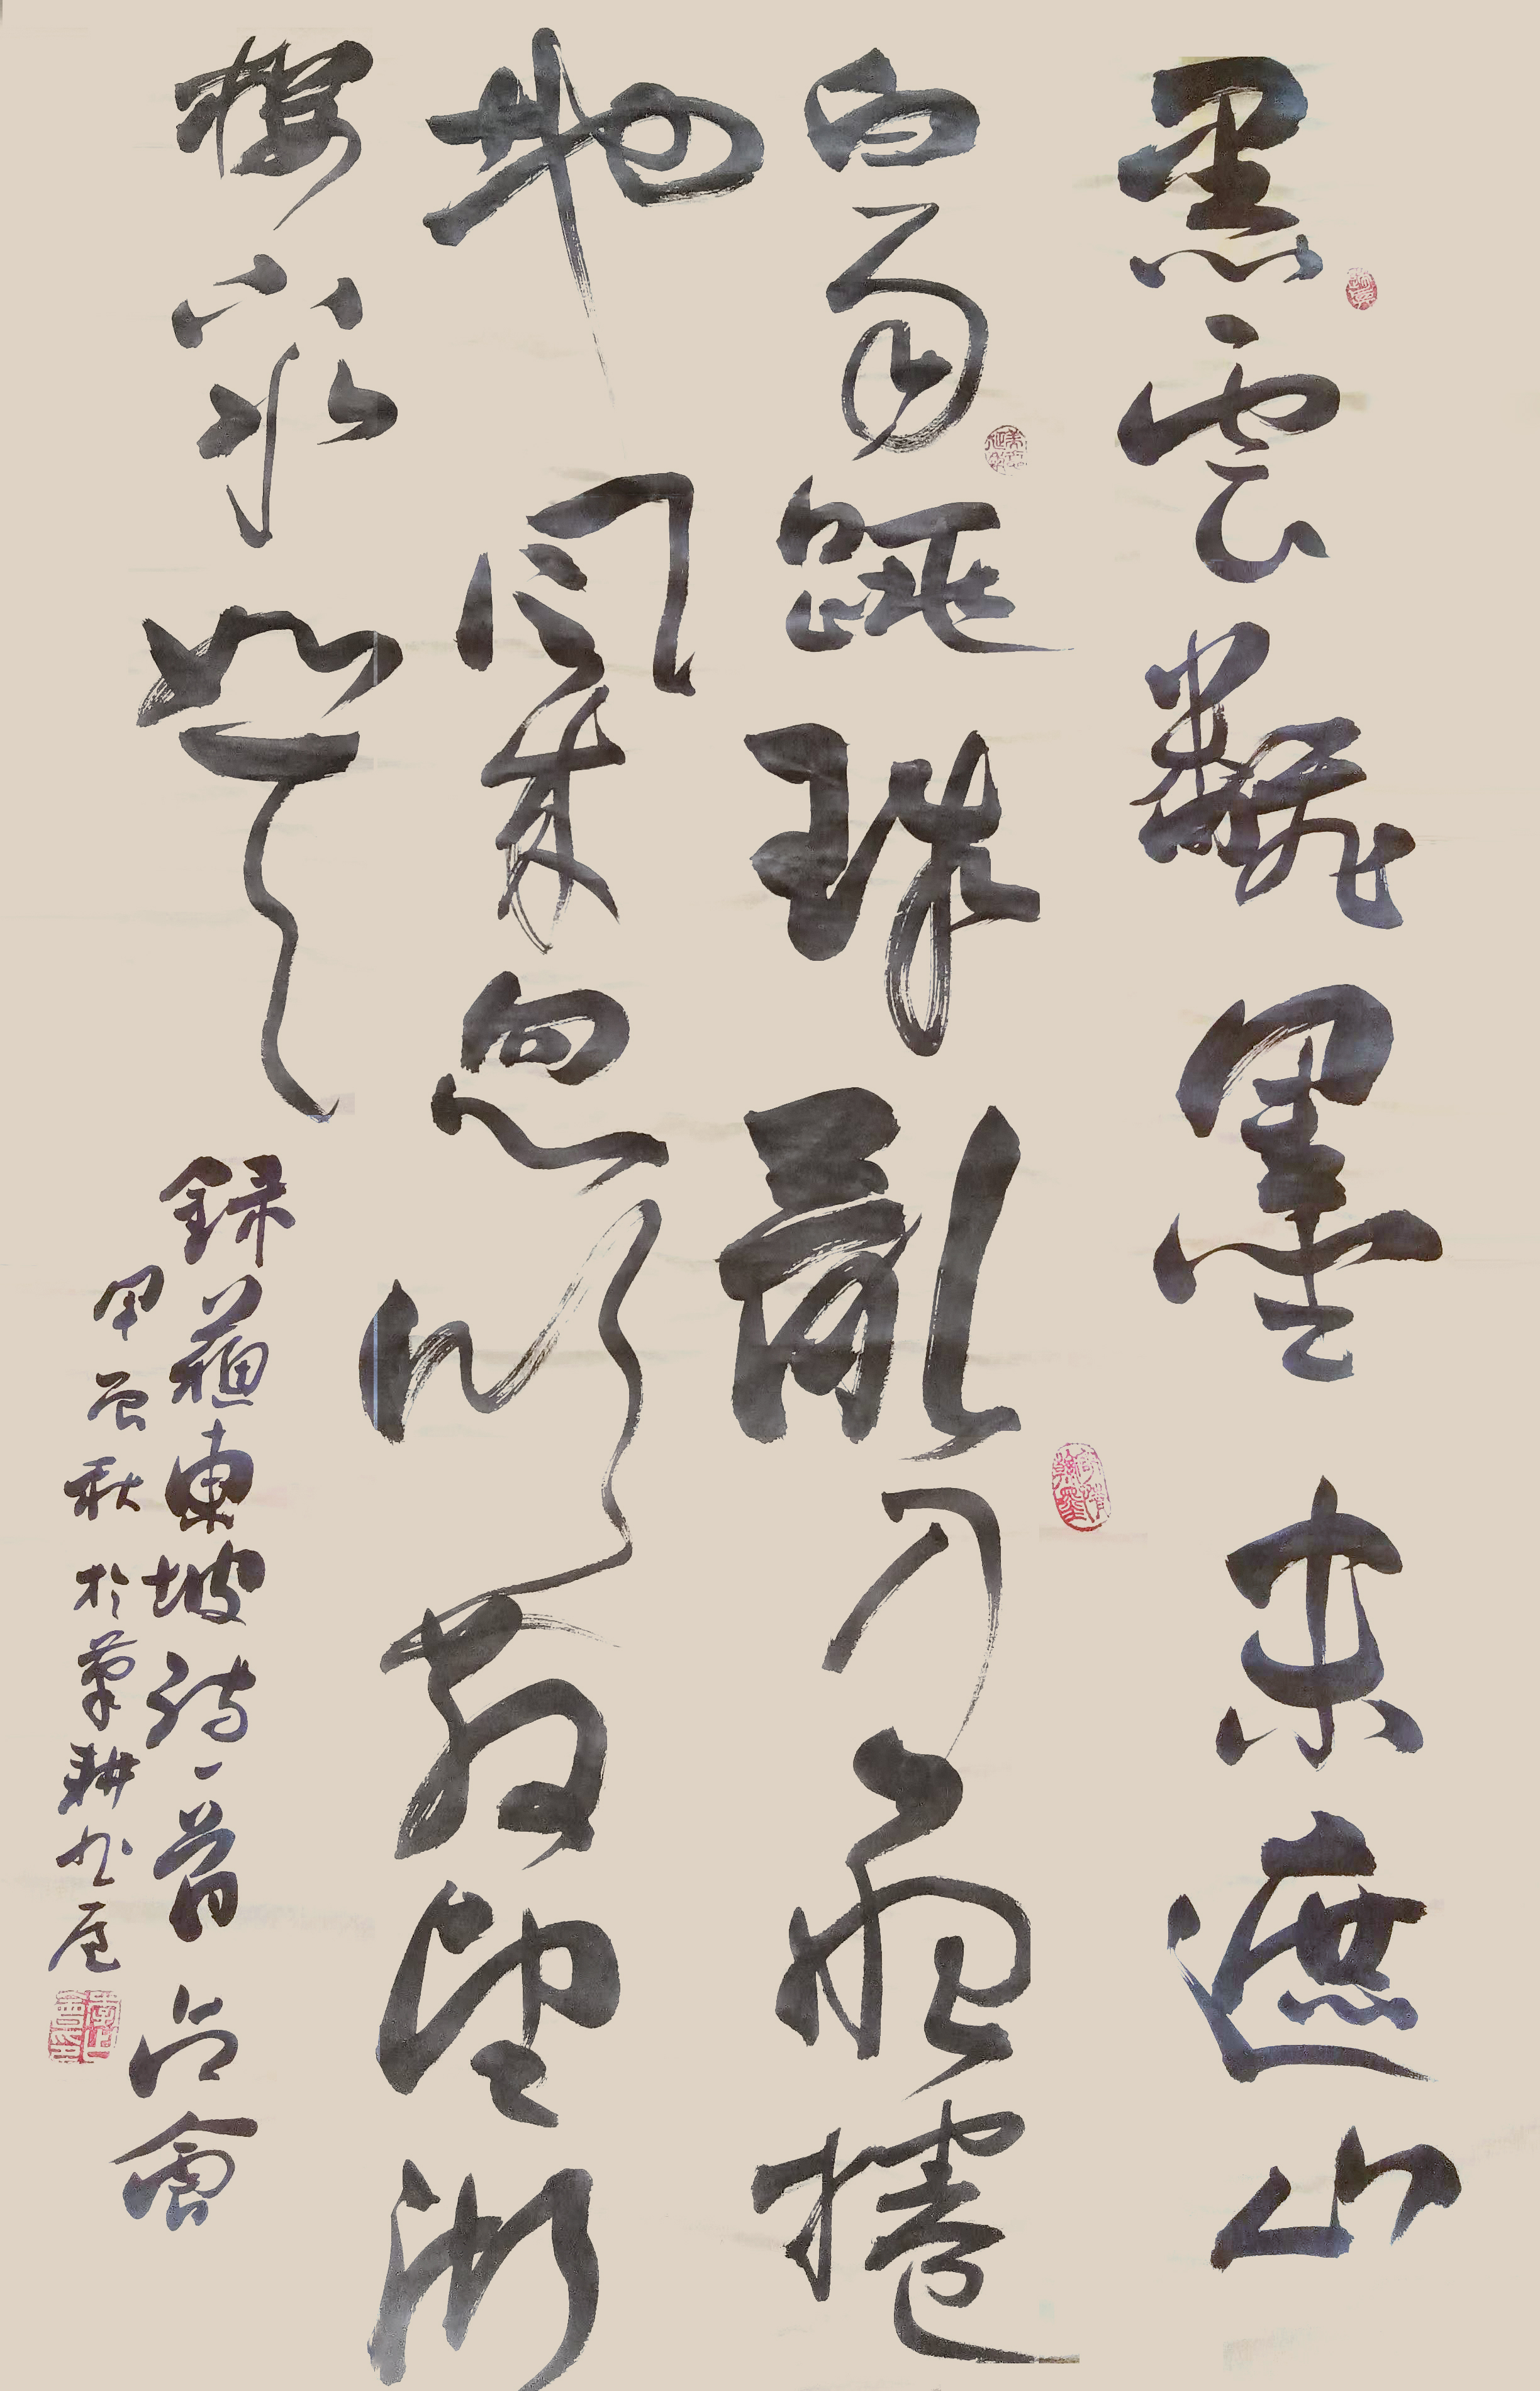 黑雲飜墨未遮山
白雨跳珠亂入船捲
地風來忽吹散望湖
樓下水如天
錄蘇東坡詩一首占會
甲辰秋於筆耕書屋